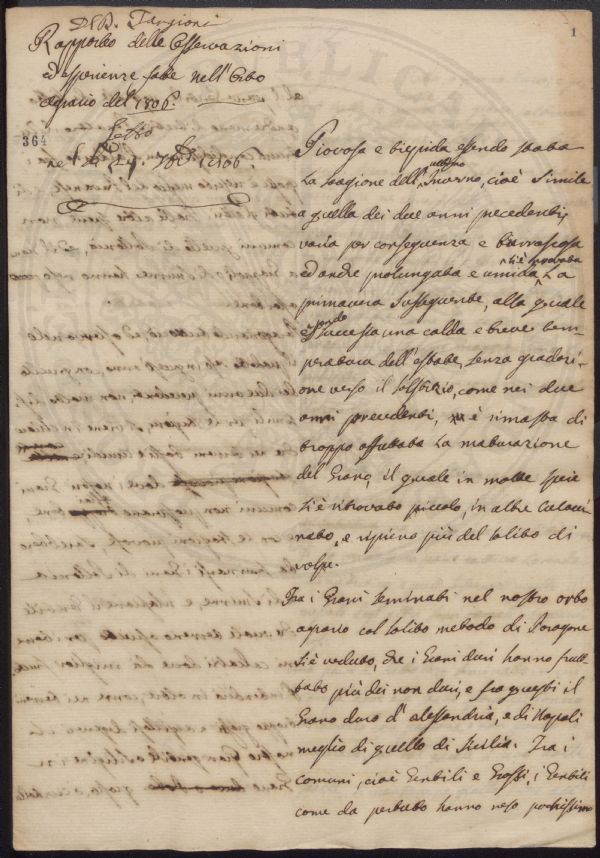 Del D. Targioni
Rapporto delle Osservazioni
ed esperienze fatte nell'Orto
agrario del 1806.
Letto
ne' 24. 1806.
1
364
Piovosa e tiepida essendo stata
la stagione dell'ultimo Inverno, cioè simile
a quella dei due anni precedenti,
varia per conseguenza e burrascosa
ed anche prolungata e umida si è trovata la
primavera susseguente, alla quale
essendo successa una calda e breve tem-
peratura dell'estate, senza gradazi-
one verso il solstizio, come nei due
anni precedenti, è rimasta di
troppo affrettata la maturazione
del Grano, il quale in molte specie
si è ritrovato piccolo, in altre
e ripieno più del solito di
volpe.
Fra i Grani seminati nel nostro orto
agrario col solito metodo di Paragone
si è veduto, che i Grani duri hanno frut-
tato più dei non duri, e fra questi il
Grano duro d'alessandria, e di Napoli
meglio di quello di Sicilia. Fra i
comuni, cioè Gentili e Grossi, i Gentili
come da pertutto hanno reso pochissimo